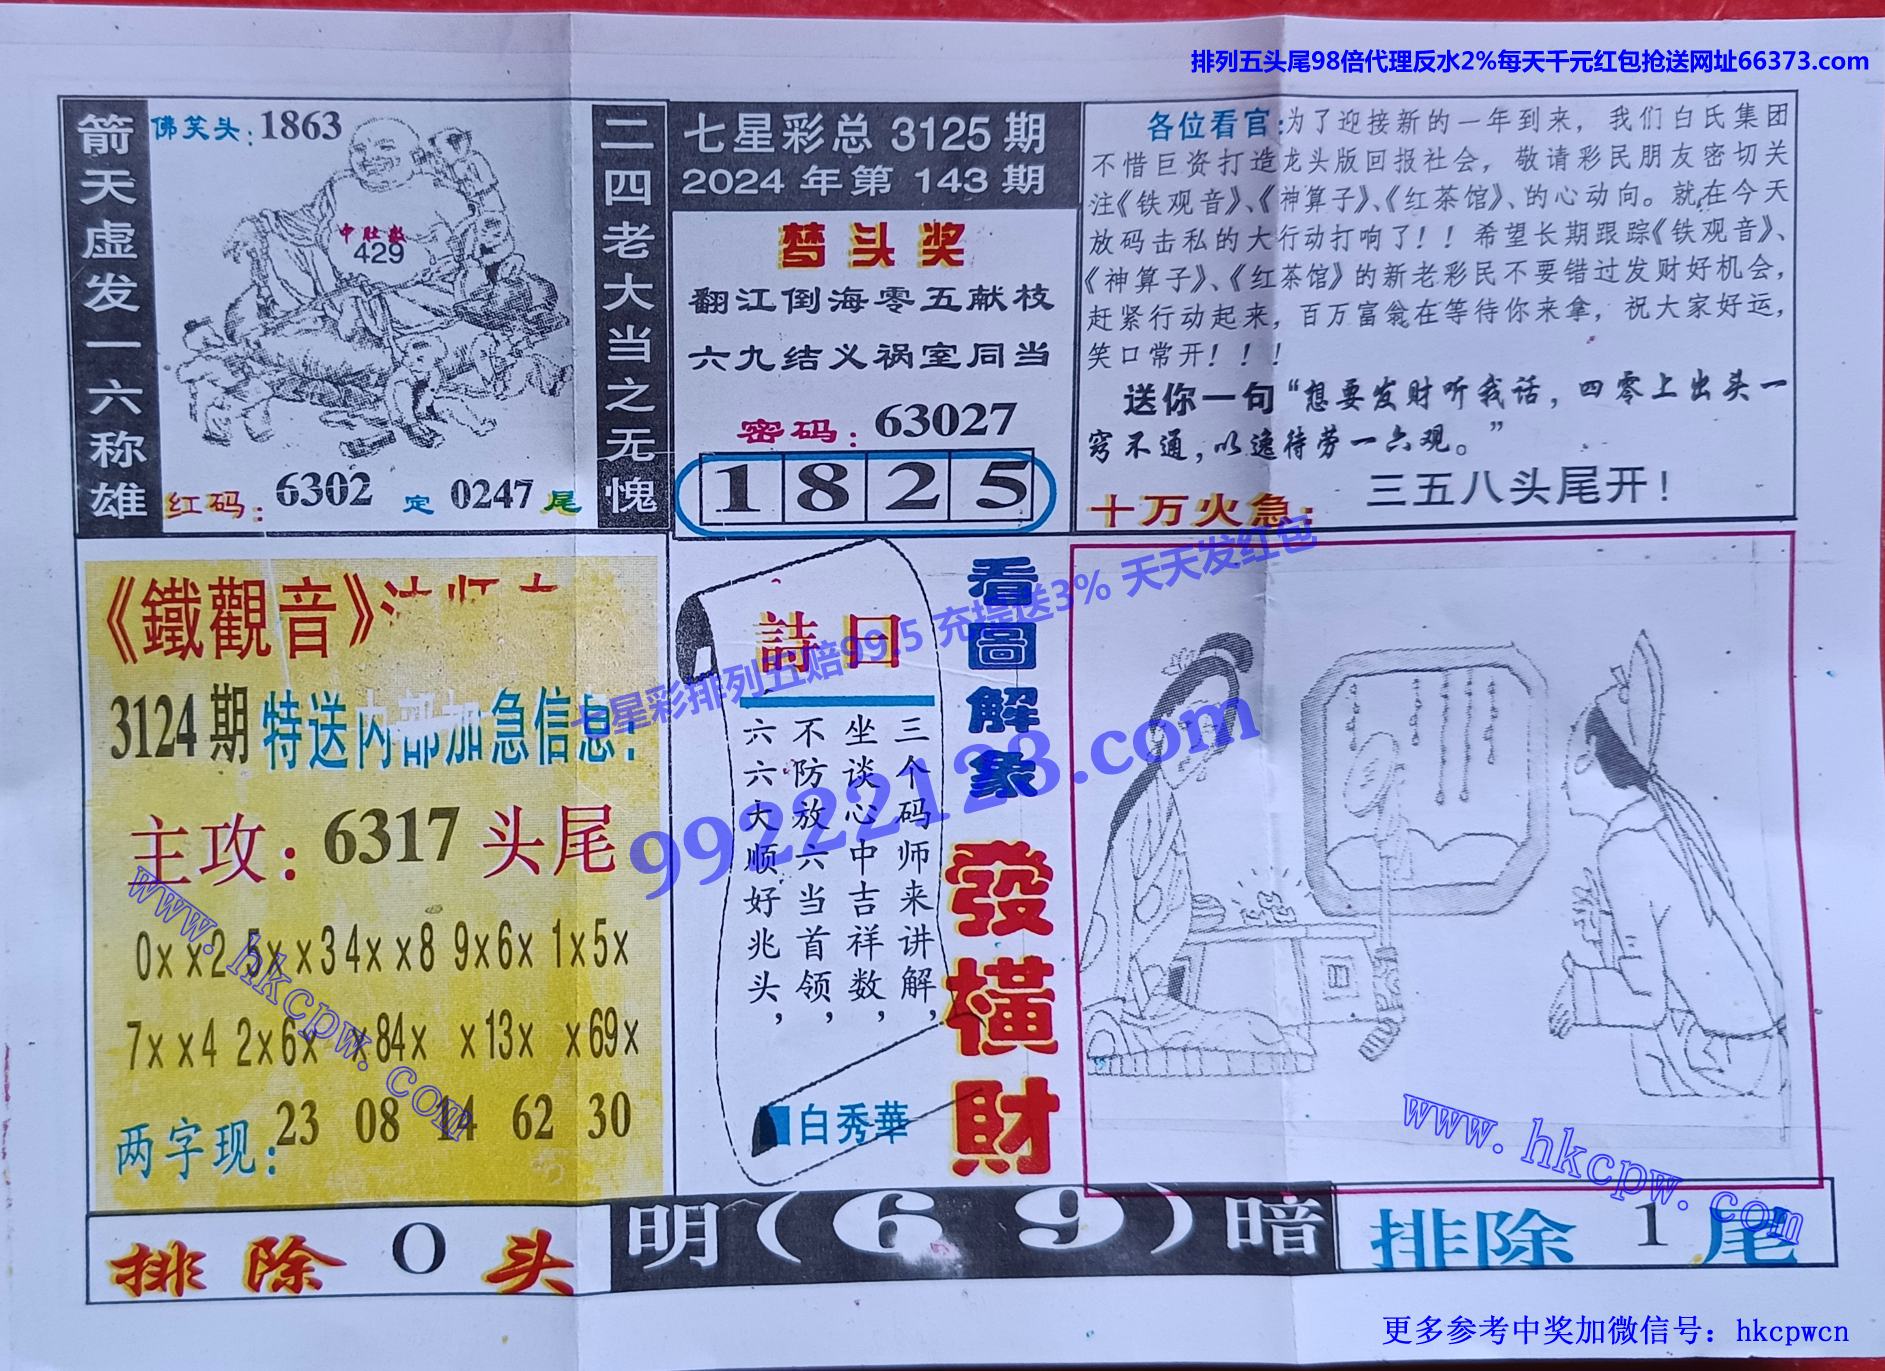 排列五头尾98倍代理反水2%每天千元红包抢送网址66373.com
箭天虚发一六称雄
佛笑头:1863
中肚数
429
红码:6302 定 0247 尾
二四老大当之无愧
七星彩总 3125 期
2024 年第 143 期
梦头奖
翻江倒海零五献枝
六九结义祸室同当
密码:63027
1 8 2 5
各位看官:为了迎接新的一年到来，我们白氏集团
不惜巨资打造龙头版回报社会，敬请彩民朋友密切关
注《铁观音》、《神算子》、《红茶馆》、的心动向。就在今天
放码击私的大行动打响了！！希望长期跟踪《铁观音》、
《神算子》、《红茶馆》的新老彩民不要错过发财好机会，
赶紧行动起来，百万富翁在等待你来拿，祝大家好运，
笑口常开！！！
送你一句“想要发财听我话，四零上出头一
窍不通，以逸待劳一六观。”
十万火急:三五八头尾开！
《鐵觀音》
3124 期 特送内部加急信息:
主攻:6317 头尾
0××2 5××3 4××8 9×6× 1×5×
7××4 2×6× ×84× ×13× ×69×
两字现:23 08 14 62 30
詩曰
三个码师来讲解，
坐谈心中吉祥数，
不防放六当首领，
六六大顺好兆头，
白秀華
看圖解象
發橫財
七星彩排列五赔99.5 充提送3% 天天发红包
99222123.com
www.hkcpw.com
www.hkcpw.com
排除 0 头
明(6 9)暗
排除 1 尾
更多参考中奖加微信号：hkcpwcn